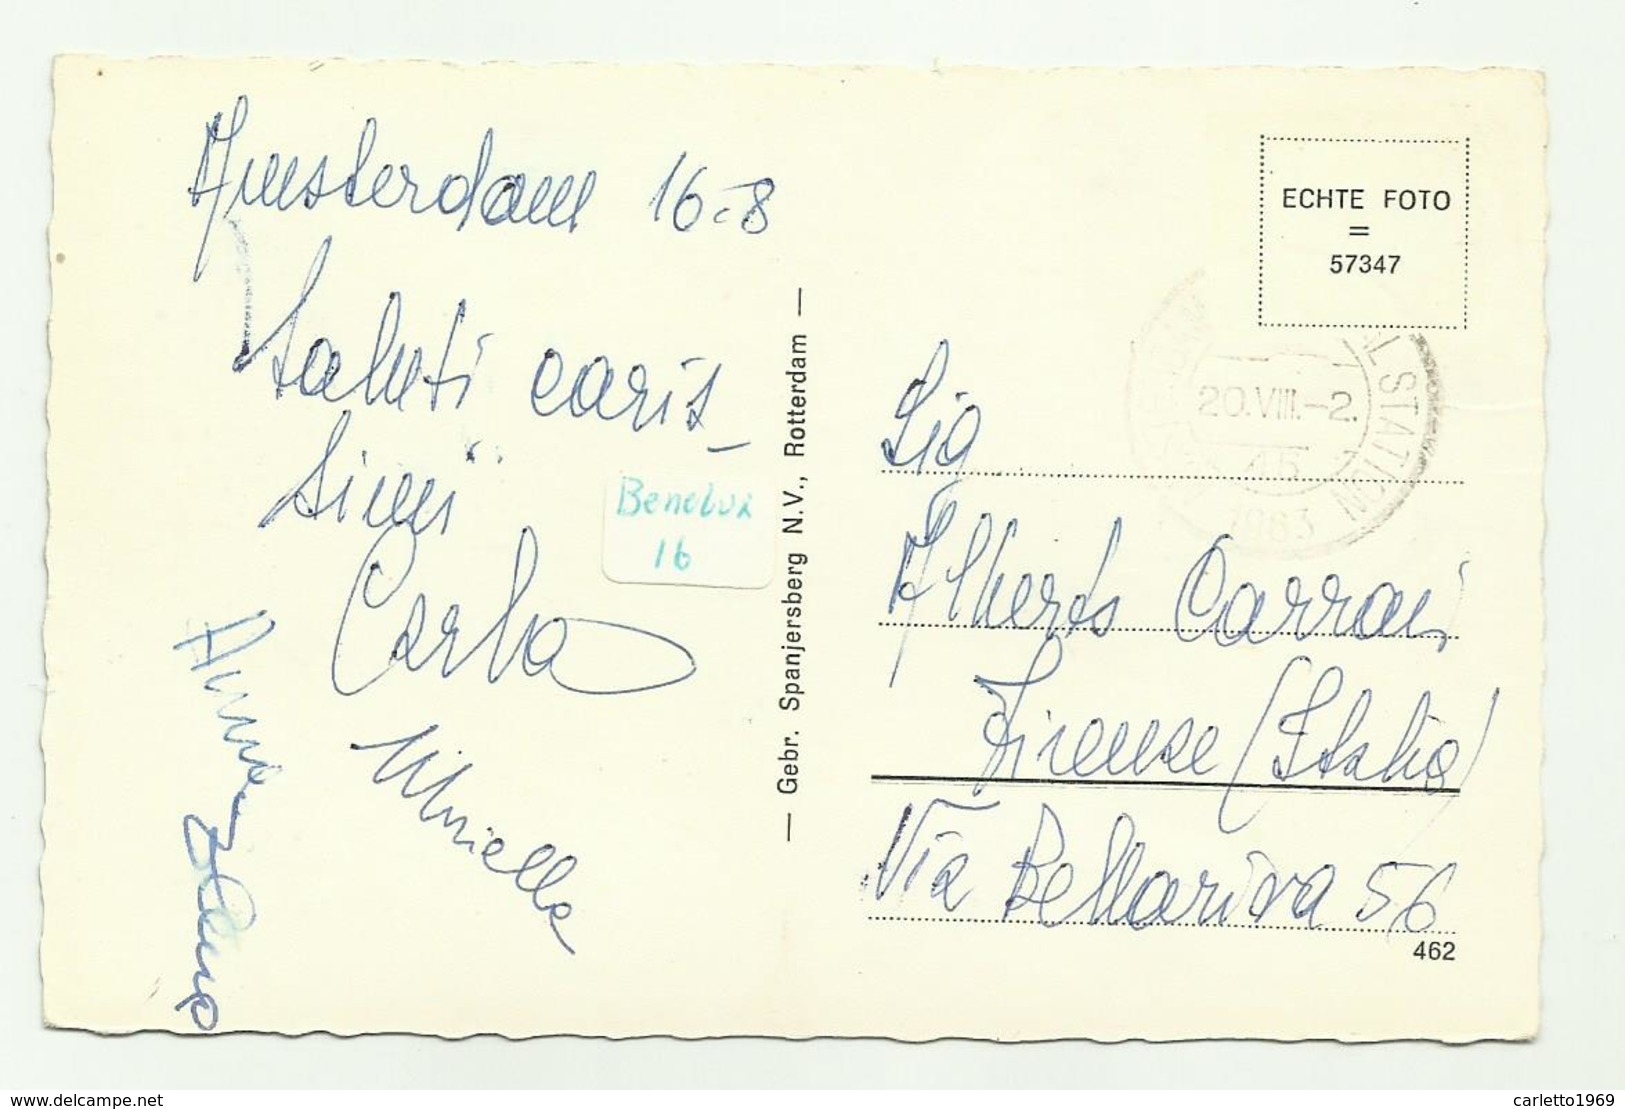 Amsterdam 16-8
Saluti caris-
simi
Carla
Mirella
Anna
Benelux
16
— Gebr. Spanjersberg N.V., Rotterdam —
ECHTE FOTO
=
57347
L STATION
20.VIII.-2.
1963
Sig
Alberto Carrai
Firenze (Italia)
Via Bellariva 56
462
www.delcampe.net
carletto1969